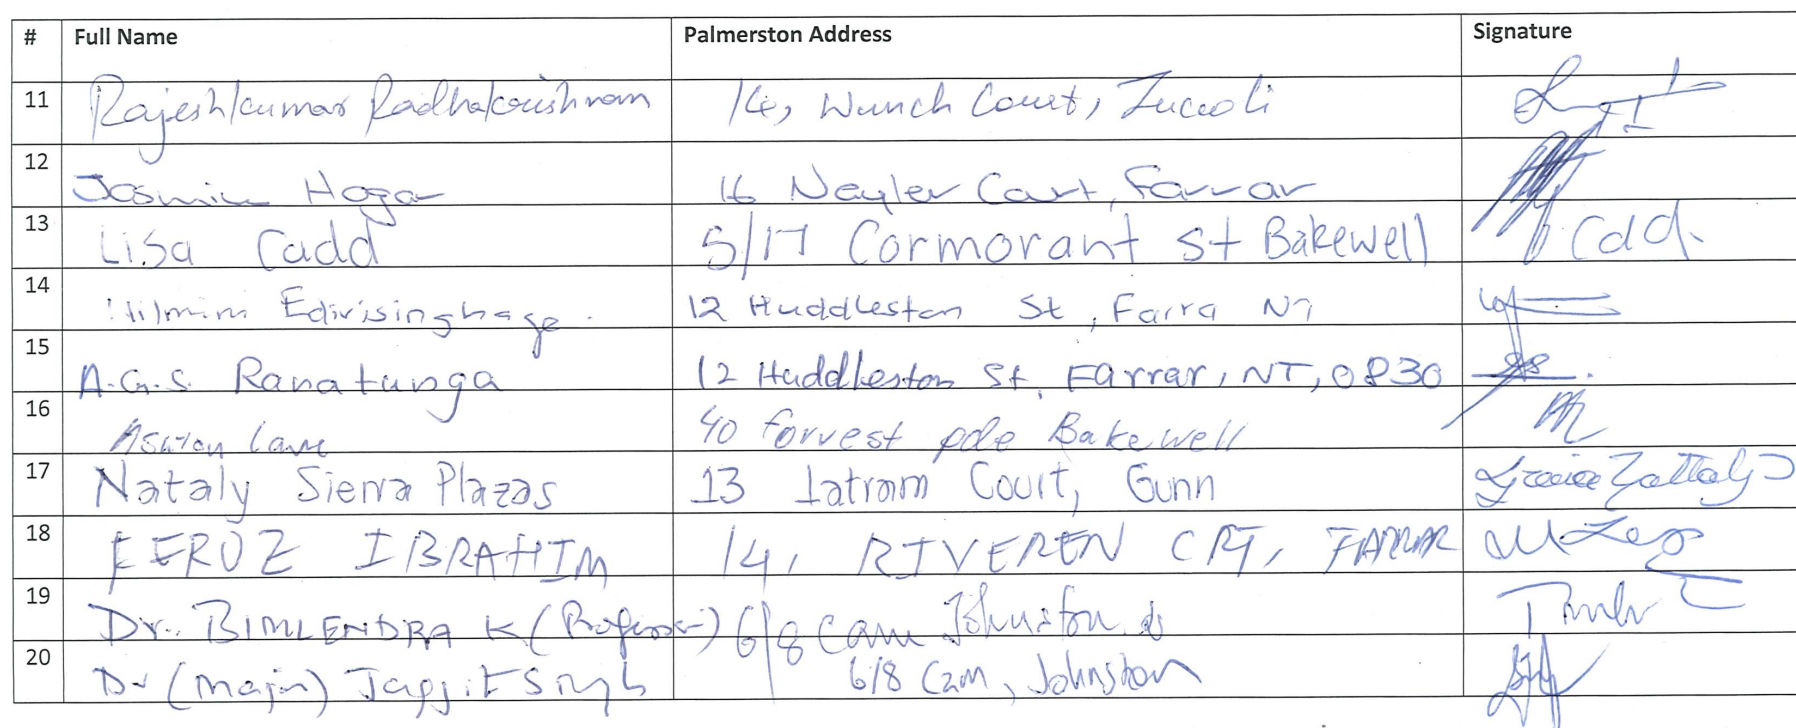 # Full Name Palmerston Address Signature
11 Rajeshkumar Radhakrishnan 14, Wunch Court, Zuccoli
12 Jasmine Hogan 16 Nayler Court, Farrar
13 Lisa Cadd 5/17 Cormorant St Bakewell Cadd.
14 Edirisinghage. 12 Huddleston St, Farra NT
15 A.G.S. Ranatunga 12 Huddleston St, Farrar, NT, 0830
16 Ashton Lane 40 forrest pde Bakewell
17 Nataly Sierra Plazas 13 Court, Gunn
18 FEROZ IBRAHIM 14, RIVEREN CRT, FARRAR
19 Dr. BIMLENDRA K (Professor) 6/8 Cam Johnston
20 Dr (Major) Jagjit Singh 6/8 Cam, Johnston